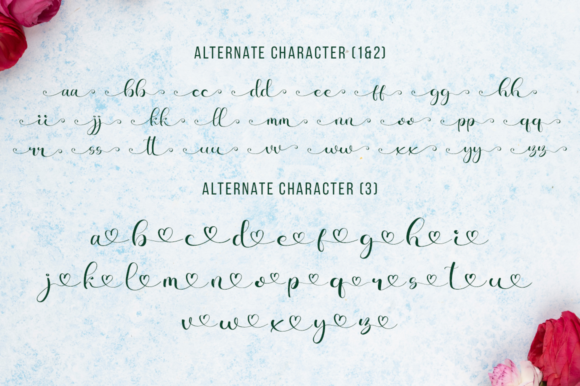 ALTERNATE CHARACTER (1&2)
aa bb cc dd ee ff gg hh
ii jj kk ll mm nn oo pp qq
rr ss tt uu vv ww xx yy zz
ALTERNATE CHARACTER (3)
a b c d e f g h i
j k l m n o p q r s t u
v w x y z